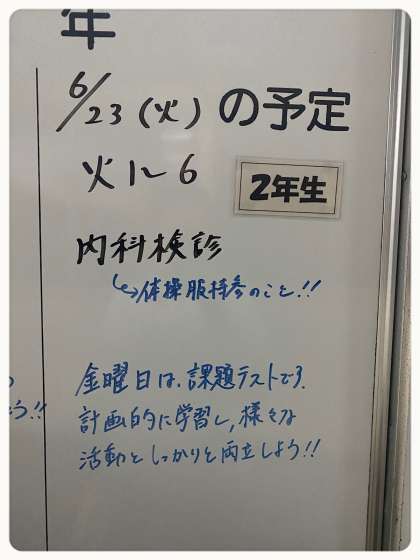 年
6/23(火)の予定
火1~6
2年生
内科検診
↳体操服持参のこと!!
う!!
金曜日は、課題テストです。
計画的に学習し、様々な
活動としっかりと両立しよう!!